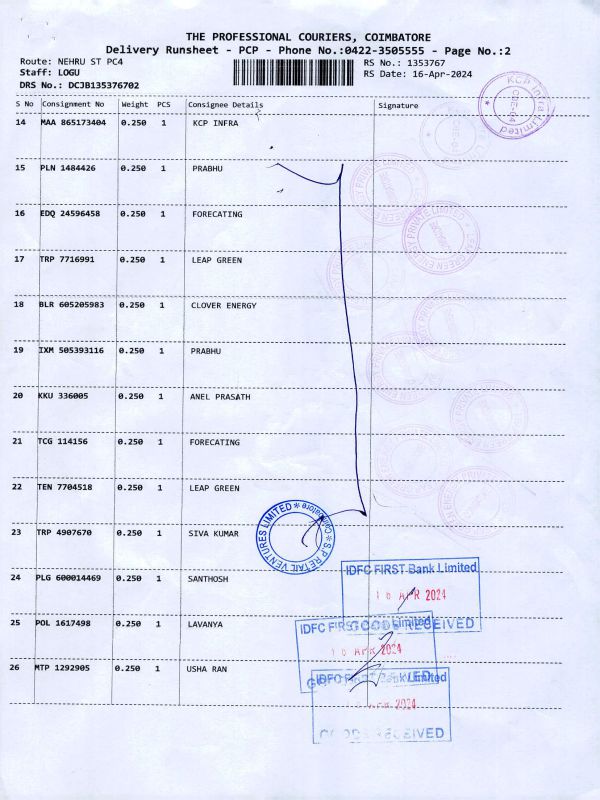 THE PROFESSIONAL COURIERS, COIMBATORE
Delivery Runsheet - PCP - Phone No.:0422-3505555 - Page No.:2
Route: NEHRU ST PC4
Staff: LOGU
DRS No.: DCJB135376702
RS No.: 1353767
RS Date: 16-Apr-2024
S No Consignment No Weight PCS Consignee Details Signature
14 MAA 865173404 0.250 1 KCP INFRA
15 PLN 1484426 0.250 1 PRABHU
16 EDQ 24596458 0.250 1 FORECATING
17 TRP 7716991 0.250 1 LEAP GREEN
18 BLR 605205983 0.250 1 CLOVER ENERGY
19 IXM 505393116 0.250 1 PRABHU
20 KKU 336005 0.250 1 ANEL PRASATH
21 TCG 114156 0.250 1 FORECATING
22 TEN 7704518 0.250 1 LEAP GREEN
23 TRP 4907670 0.250 1 SIVA KUMAR
24 PLG 600014469 0.250 1 SANTHOSH
25 POL 1617498 0.250 1 LAVANYA
26 MTP 1292905 0.250 1 USHA RAN
KCP Infra Limited
S.P RETAIL VENTURES LIMITED * Coimbatore *
IDFC FIRST Bank Limited
16 APR 2024
GOODS RECEIVED
IDFC FIRST Limited
16 APR 2024
IDFC FIRST Bank Limited
APR 2024
GOODS RECEIVED